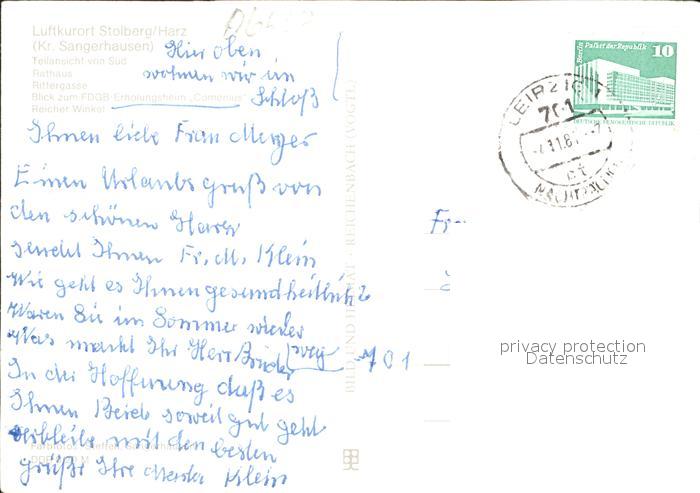 Luftkurort Stolberg/Harz
(Kr. Sangerhausen)
Teilansicht von Süd
Rathaus
Rittergasse
Blick zum FDGB-Erholungsheim „Comenius"
Reicher Winkel
Hier oben
wohnen wir im
Schloß
Ihnen liebe Frau Meyer
Einen Urlaubsgruß von
den schönen Harz
sendet Ihnen Fr. M. Klein
Wie geht es Ihnen gesundheitlich?
Waren Sie im Sommer wieder
weg
Was macht Ihr Herr Bruder
In der Hoffnung daß es
Ihnen Beide soweit gut geht
verbleibe mit den besten
grüße Ihre Klein
BILD UND HEIMAT · REICHENBACH
Berlin Palast der Republik
10
DEUTSCHE DEMOKRATISCHE REPUBLIK
LEIPZIG
701
701
privacy protection
Datenschutz